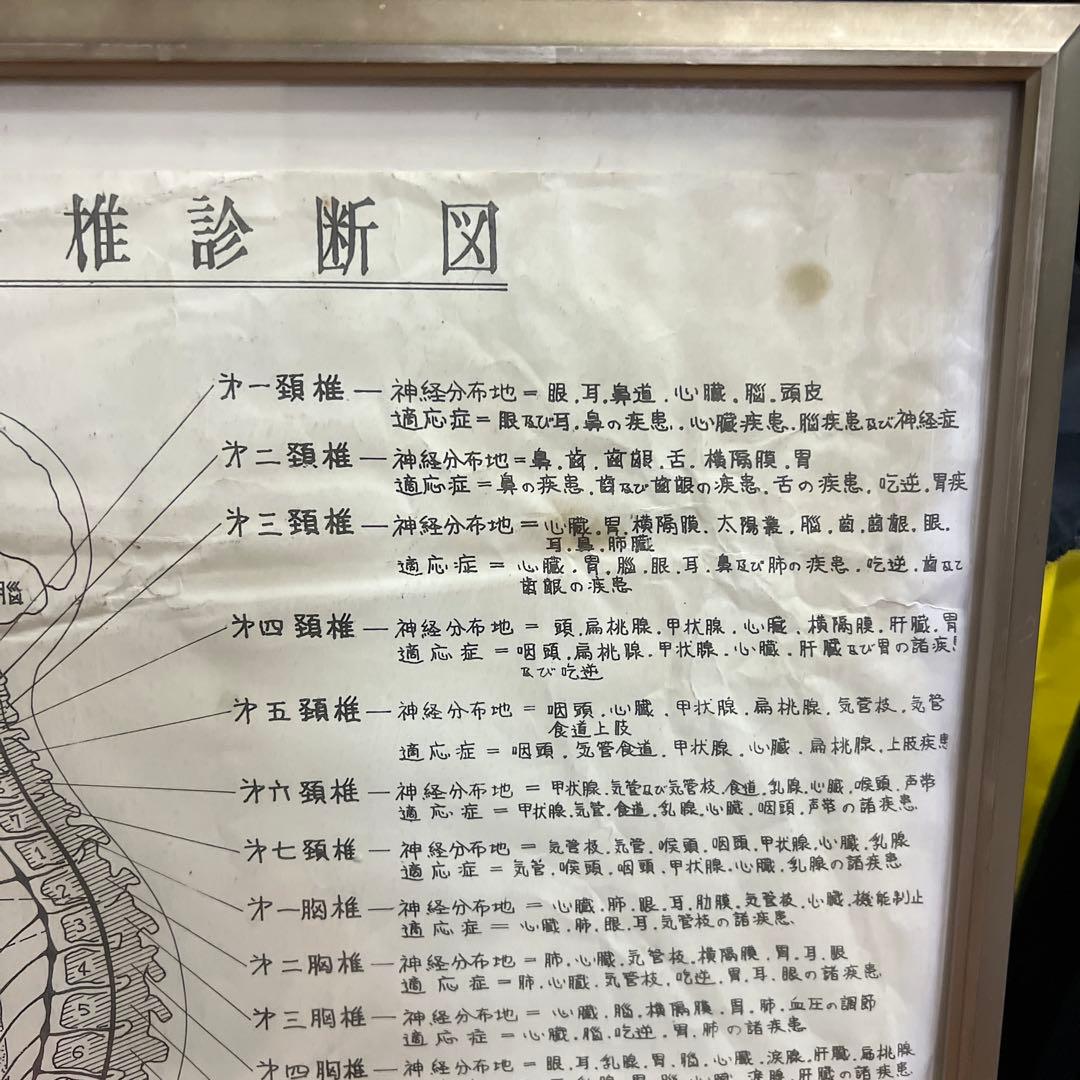 椎診断図
第一頚椎 — 神経分布地 = 眼.耳.鼻道.心臓.脳.頭皮
適応症 = 眼及び耳.鼻の疾患.心臓疾患.脳疾患及び神経症
第二頚椎 — 神経分布地 = 鼻.歯.歯齦.舌.横隔膜.胃
適応症 = 鼻の疾患.歯及び歯齦の疾患.舌の疾患.吃逆.胃疾
第三頚椎 — 神経分布地 = 心臓.胃.横隔膜.太陽叢.脳.歯.歯齦.眼.
耳.鼻.肺臓
適応症 = 心臓.胃.脳.眼.耳.鼻及び肺の疾患.吃逆.歯及び
歯齦の疾患
第四頚椎 — 神経分布地 = 頭.扁桃腺.甲状腺.心臓.横隔膜.肝臓.胃
適応症 = 咽頭.扁桃腺.甲状腺.心臓.肝臓及び胃の諸疾
及び吃逆
第五頚椎 — 神経分布地 = 咽頭.心臓.甲状腺.扁桃腺.気管枝.気管
食道上肢
適応症 = 咽頭.気管食道.甲状腺.心臓.扁桃腺.上肢疾患
第六頚椎 — 神経分布地 = 甲状腺.気管及び気管枝.食道.乳腺.心臓.喉頭.声帯
適応症 = 甲状腺.気管.食道.乳腺.心臓.咽頭.声帯の諸疾患
第七頚椎 — 神経分布地 = 気管枝.気管.喉頭.咽頭.甲状腺.心臓.乳腺
適応症 = 気管.喉頭.咽頭.甲状腺.心臓.乳腺の諸疾患
第一胸椎 — 神経分布地 = 心臓.肺.眼.耳.肋膜.気管枝.心臓.機能制止
適応症 = 心臓.肺.眼.耳.気管枝の諸疾患
第二胸椎 — 神経分布地 = 肺.心臓.気管枝.横隔膜.胃.耳.眼
適応症 = 肺.心臓.気管枝.吃逆.胃.耳.眼の諸疾患
第三胸椎 — 神経分布地 = 心臓.脳.横隔膜.胃.肺.血圧の調節
適応症 = 心臓.脳.吃逆.胃.肺の諸疾患
第四胸椎 — 神経分布地 = 眼.耳.乳腺.胃.脳.心臓.涙腺.肝臓.扁桃腺
7
1
2
3
4
5
6